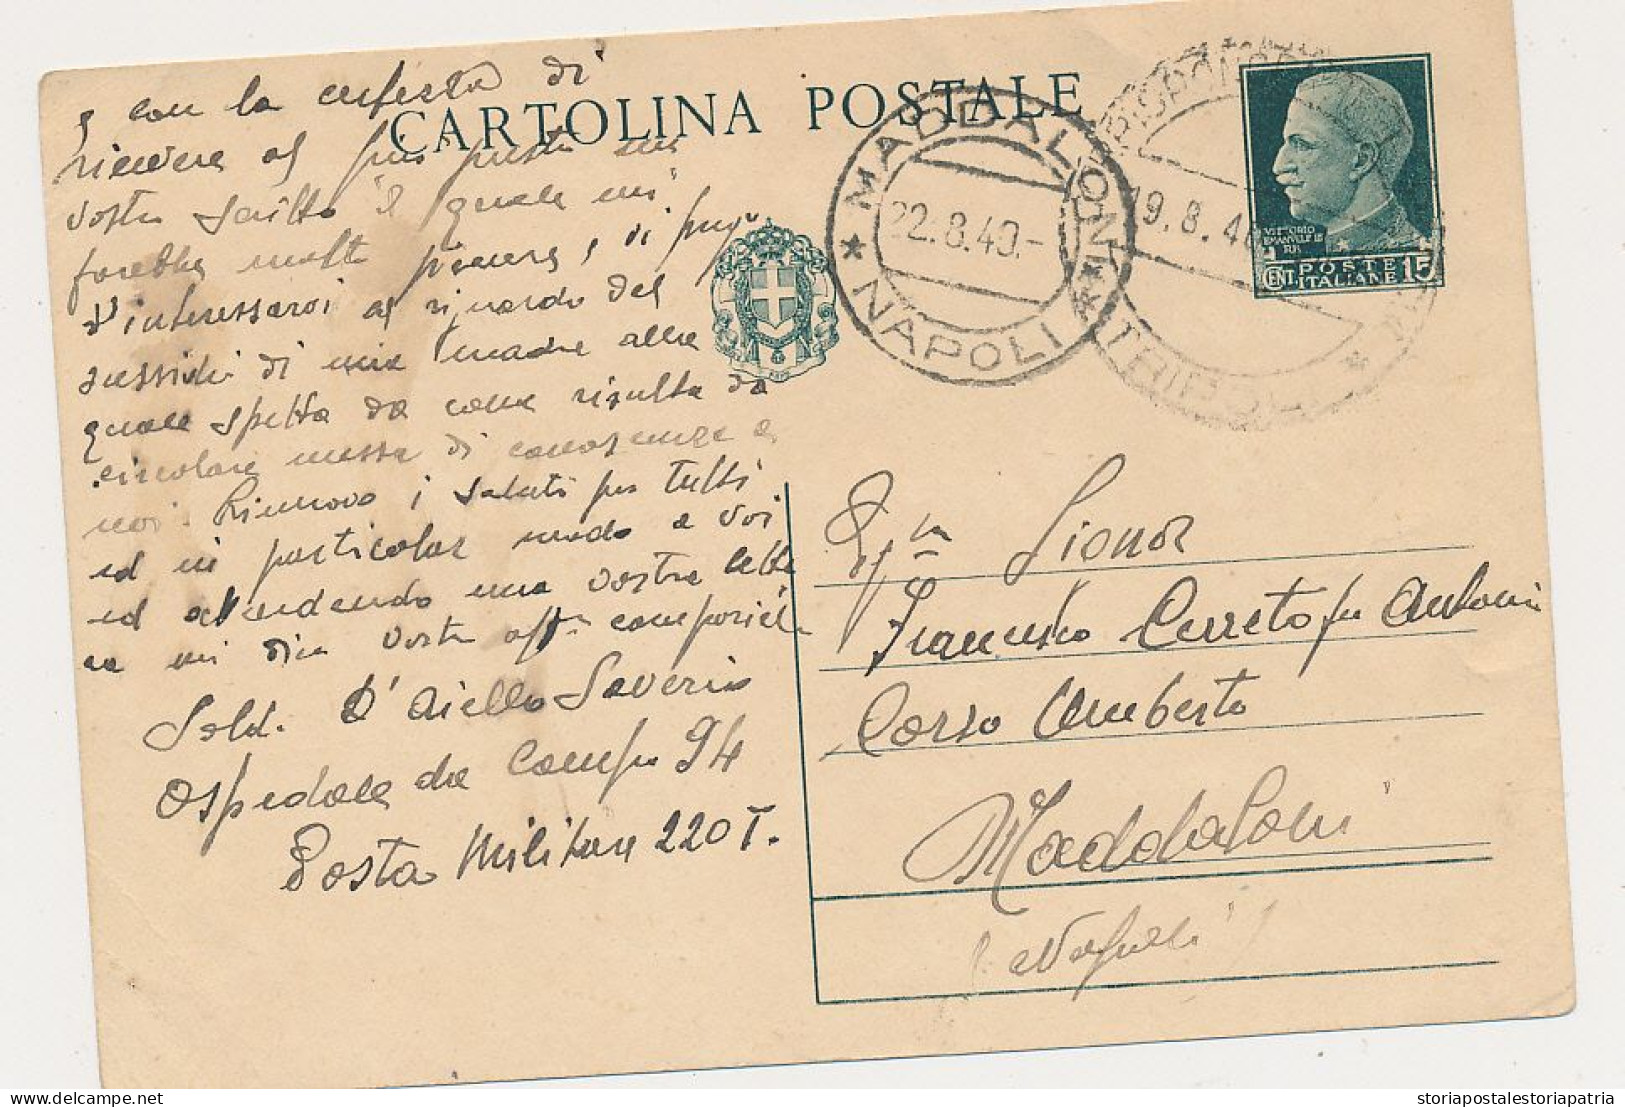 CARTOLINA POSTALE
e con la certezza di
ricevere al più presto un
vostro scritto il quale mi
farebbe molto piacere, di più
d'interessarvi al riguardo del
sussidio di mia madre alla
quale spetta da come risulta da
circolare messa di conoscenza a
noi. Rinnovo i saluti per tutti
ed in particolar modo a voi
ed attendendo una vostra lette
ra mi dico vostro aff.
Sold. D'Aiello Saverio
Ospedale da Campo 94
Posta Militare 220 T.
MADDALONI
22.8.40.-
* NAPOLI *
19.8.40
TRIPOLI
VITTORIO
EMANUELE III
CENT. POSTE 15
ITALIANE
Signor
Francesco Cerreto fu Antonio
Corso Umberto
Maddaloni
(Napoli)
storiapostalestoriapatria